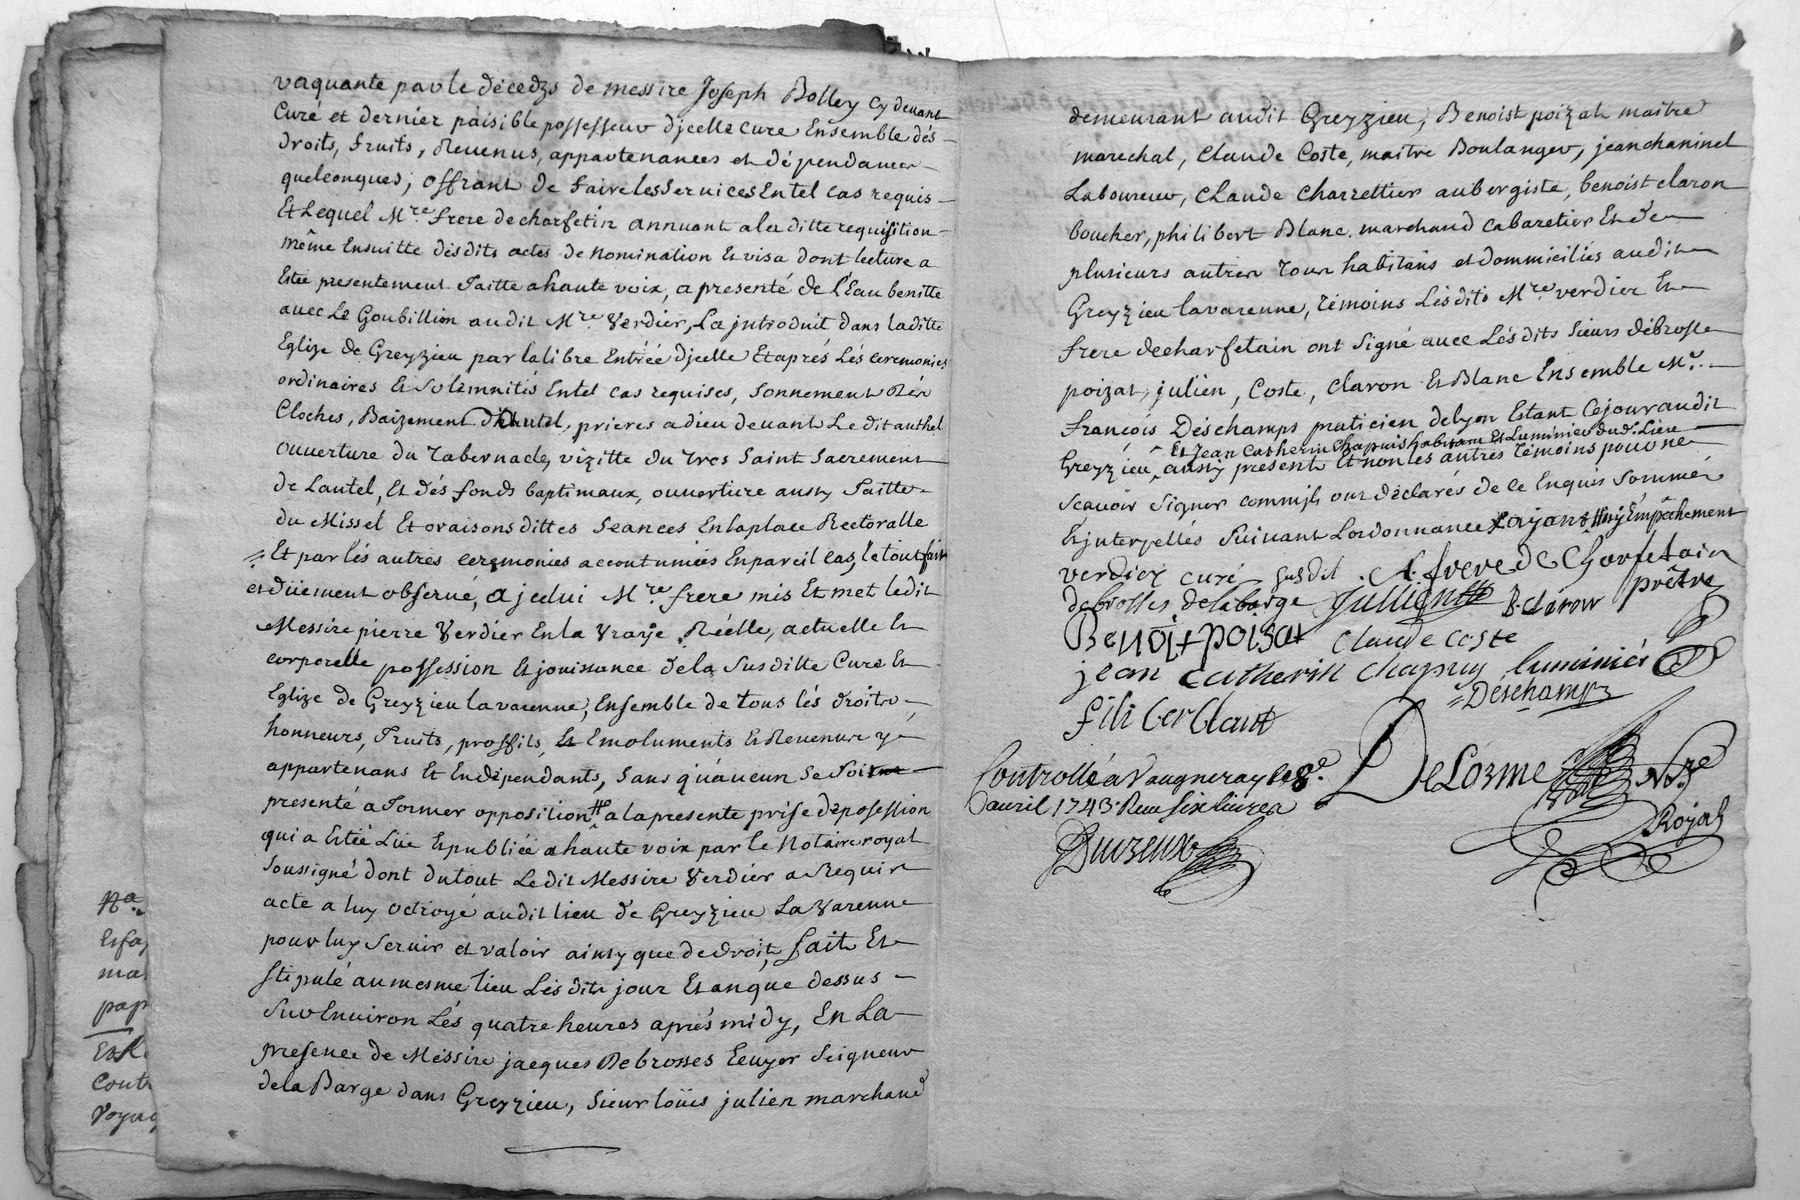 vaquante par le décedzs de messire Joseph Bolley cy devant
Curé et dernier paisible possesseur djcelle cure Ensemble dés
droits, fruits, Revenus, appartenances et dépendances
quelconques; offrant de faire les services En tel cas requis
Et Lequel Mre. frere de charfetin annuant a la ditte requisition
même Ensuitte desdits actes de nomination Et visa dont lecture a
Estée presentement faitte a haute voix, a presenté de l'Eau benitte
avec Le Goubillion audit Mre. Verdier, La jntroduit dans laditte
Eglize de Greyzieu par la libre Entréé djcelle Et aprés Lés ceremonies
ordinaires Et solemnités En tel cas requises, sonnement Dés
Cloches, Baizement D'autel, prieres a dieu devant Le dit authel
ouverture du Tabernacle, vizitte du tres saint sacrement
de Lautel, Et dés fonds baptimaux, ouverture aussy faitte
du Missel Et oraisons dittes seances En la place Rectoralle
Et par lés autres ceremonies accoutumées En pareil cas, le tout fait
et düement observé, a jcelui Mre. frere mis Et met ledit
Messire pierre Verdier En la Vraye Réélle, actuelle Et
corporelle possession Et jouissance de la susditte Cure Et
Eglize de Greyzieu la varenne, Ensemble de tous lés droits,
honneurs, fruits, proffits, Et Emoluments Et Revenus y
appartenans Et En dépendants, sans qu'aucun se soit
presenté a former opposition a la presente prise de posession
qui a Estée Lüe Et publiée a haute voix par le Notaire royal
soussigné dont du tout Le dit Messire Verdier a Requis
acte a luy octroyé audit lieu de Greyzieu La Varenne
pour luy servir et valoir ainsy que de droit, fait Et
stipulé au mesme lieu Lés dits jour Et an que dessus
sur Environ Lés quatre heures aprés midy, En La
presence de Méssire jacques Debrosses Ecuyer Seigneur
de la Barge dans Greyzieu, sieur loüis julien marchand
demeurant audit Greyzieu, Benoist poizat maitre
marechal, Claude Coste, maitre Boulanger, jean chaninel
Laboureur, Claude Charrettier aubergiste, benoist claron
boucher, philibert Blanc marchand cabaretier Et de
plusieurs autres tous habitans et dommiciliés audit
Greyzieu lavarenne, témoins Lésdits Mre. verdier Et
frere decharfetain ont signé avec Lés dits sieurs débrosse
poizat, julien, Coste, claron Et Blanc Ensemble Mr.
françois Déschamps praticien de lyon Estant Cejour audit
Et jean Catherin Chapuis habitant Et Luminier dud. Lieu
Greyzieu, aussy present Et non les autres témoins pour ne
scavoir signer comm'jls ont déclarés de ce Enquis sommés
Et jnterpellés suivant Lordonnance
verdier curé susdit . A. frere de Charfetain
prêtre
debrosses delabarge Jullien B. claron
Benoit poisat Claude coste
jean catherin chapuy luminiér
Déschamps
filiber blanc
Controllé a Vaugneray le 8e.
avril 1743. Reçu six livres
DeLorme Nre
Royal